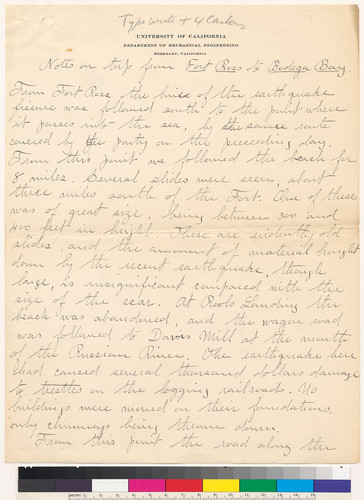 Typewrite + 4 Carbons
UNIVERSITY OF CALIFORNIA
DEPARTMENT OF MECHANICAL ENGINEERING
BERKELEY, CALIFORNIA
Notes on trip from Fort Ross to Bodega Bay.
From Fort Ross the line of the earthquake
fissure was followed south to the point where
it passes into the sea, by the same route
covered by the party on the preceeding day.
From this point we followed the beach for
8 miles. Several slides were seen, about
three miles south of the Fort. One of these
was of great size, being between 300 and
400 feet in height. These are evidently old
slides, and the amount of material brought
down by the recent earthquake, though
large, is insignificant compared with the
size of the scar. At Rools Landing the
beach was abandoned, and the wagon road
was followed to Davis Mill at the mouth
of the Russian River. The earthquake here
had caused several thousand dollars damage
to trestles on the logging railroads. No
buildings were moved on their foundations,
only chimneys being thrown down.
From this point the road along the